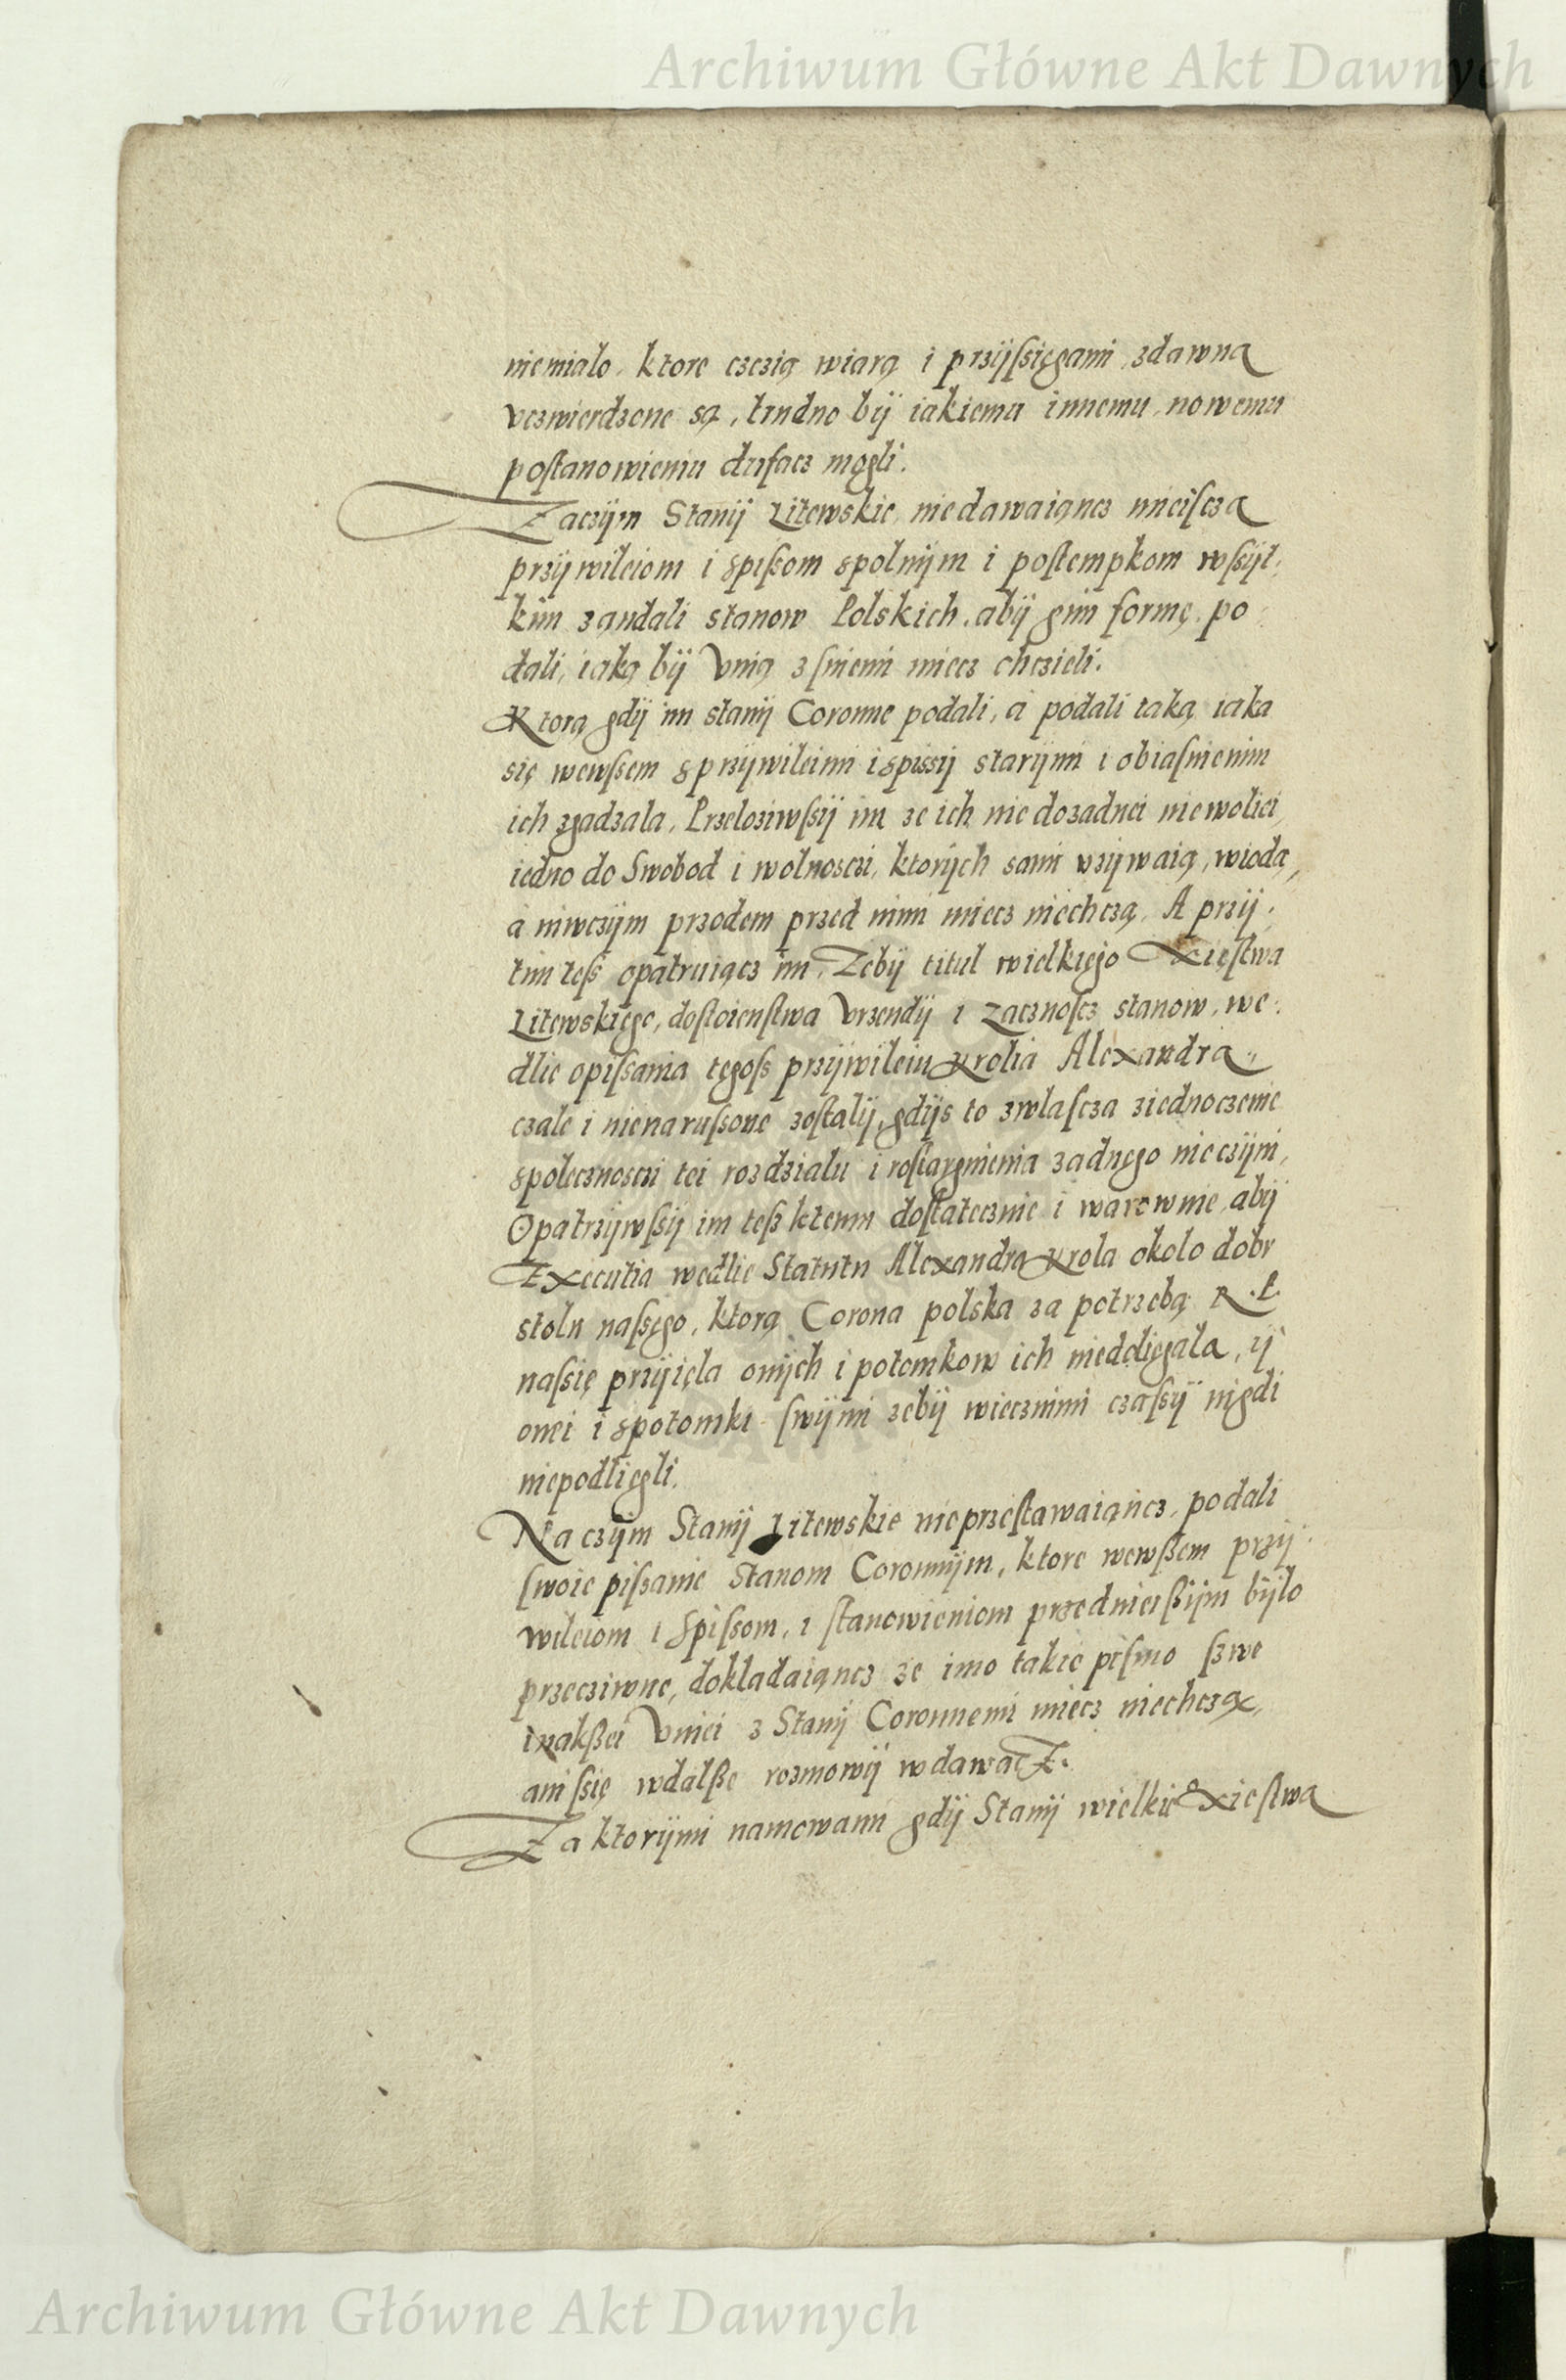 Archiwum Główne Akt Dawnych
niemialo, ktore czczią wiarą i przijsięgami zdawna
vczwierdzone są, trudno bij iakiemu innemu nowemu
postanowieniu dufacz mogli.
Zaczijm Stanij Litewskie, niedawaiąncz mieiscza
przijwileiom i spissom spolnijm i postempkom wssijt:
kim ząndali stanow Polskich, abij gim formę po:
dali, iaką bij Vnią z sniemi miecz chczieli.
Ktorą gdij im stanij Coronne podali, a podali taką iaka
się wewssem sprzijwileimi i spissij starijmi i obiasnienim
ich zgadzala. Przeloziwssij im ze ich nie dozadnei niewoliei,
iedno do Swobod i wolnosczi, ktorijch sami vzijwaią, wiodą,
a niwczijm przodem przed nimi miecz niechczą. A przij:
tim tess opatruiącz im, Zebij titul wielkięgo Xięstwa
Litewskiego, dostoienstwa Vrzendij i zacznoscz stanow, we:
dlie opissania tęgoss przijwileiu Krolia Alexandra,
czale i nienarussone zostalij, gdijs to zwlascza ziednoczenie
spolecznosczi tei rozdzialu i rostargnienia zadnęgo nieczijni,
Opatrzijwssij im tess ktemu dostatecznie i warownie, abij
Executia wedlie Statutu Alexandra Krola okolo dobr
stolu nassęgo, ktorą Corona polska za potrzebą R. P.
nassię przijięla onijch i potomkow ich niedoliegala, ij
onei i spotomki swijmi zebij wiecznimi czassij nigdi
niepodliegli.
Na czijm Stanij Litewskie nieprzestawaiąncz, podali
swoie pissanie Stanom Coronnijm, ktore wewssem przij:
wileiom i Spissom, i stanowieniom przednieissijm bijlo
przecziwne, dokladaiąncz ze imo takie pismo szwe
inakssei Vniei z Stanij Coronnemi miecz niechczą,
ani ssię wdalsse rozmowij wdawacz.
Za ktorijmi namowami gdij Stanij wielkie Xiestwa
Archiwum Główne Akt Dawnych